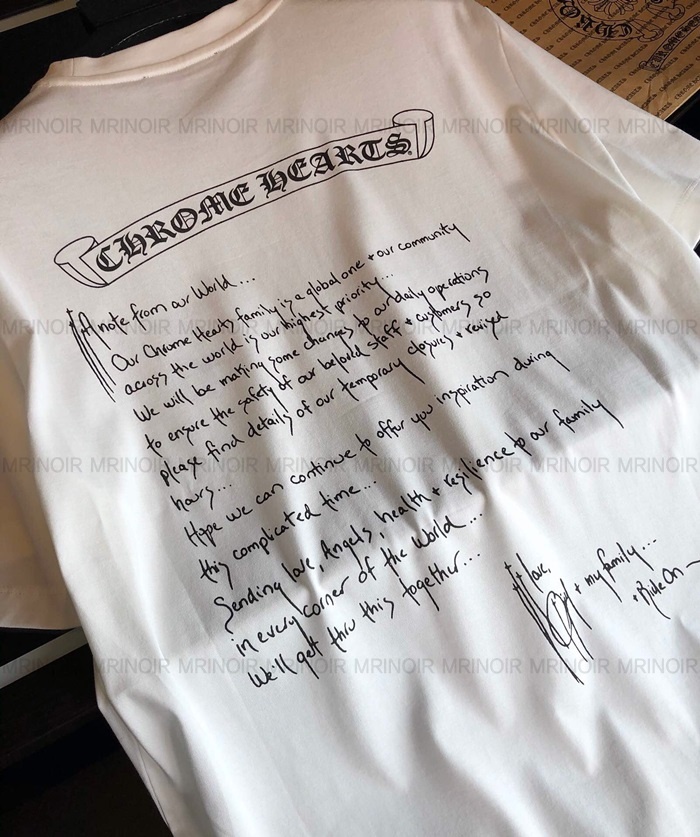 CHROME HEARTS
A note from our World...
Our Chrome Hearts family is a global one + our community
across the world is our highest priority...
We will be making some changes to our daily operations
to ensure the safety of our beloved staff + customers so
please find details of our temporary closures + revised
hours...
Hope we can continue to offer you inspiration during
this complicated time...
Sending love, Angels, health + resilience to our family
in every corner of the World...
We'll get thru this together...
love,
+ my family...
+ Ride On
MRINOIR MRINOIR MRINOIR MRINOIR MRINOIR MRINOIR MRINOIR MRINOIR
MRINOIR MRINOIR MRINOIR MRINOIR MRINOIR MRINOIR MRINOIR MRINOIR
MRINOIR MRINOIR MRINOIR MRINOIR MRINOIR MRINOIR MRINOIR MRINOIR
MRINOIR MRINOIR MRINOIR MRINOIR MRINOIR MRINOIR MRINOIR MRINOIR